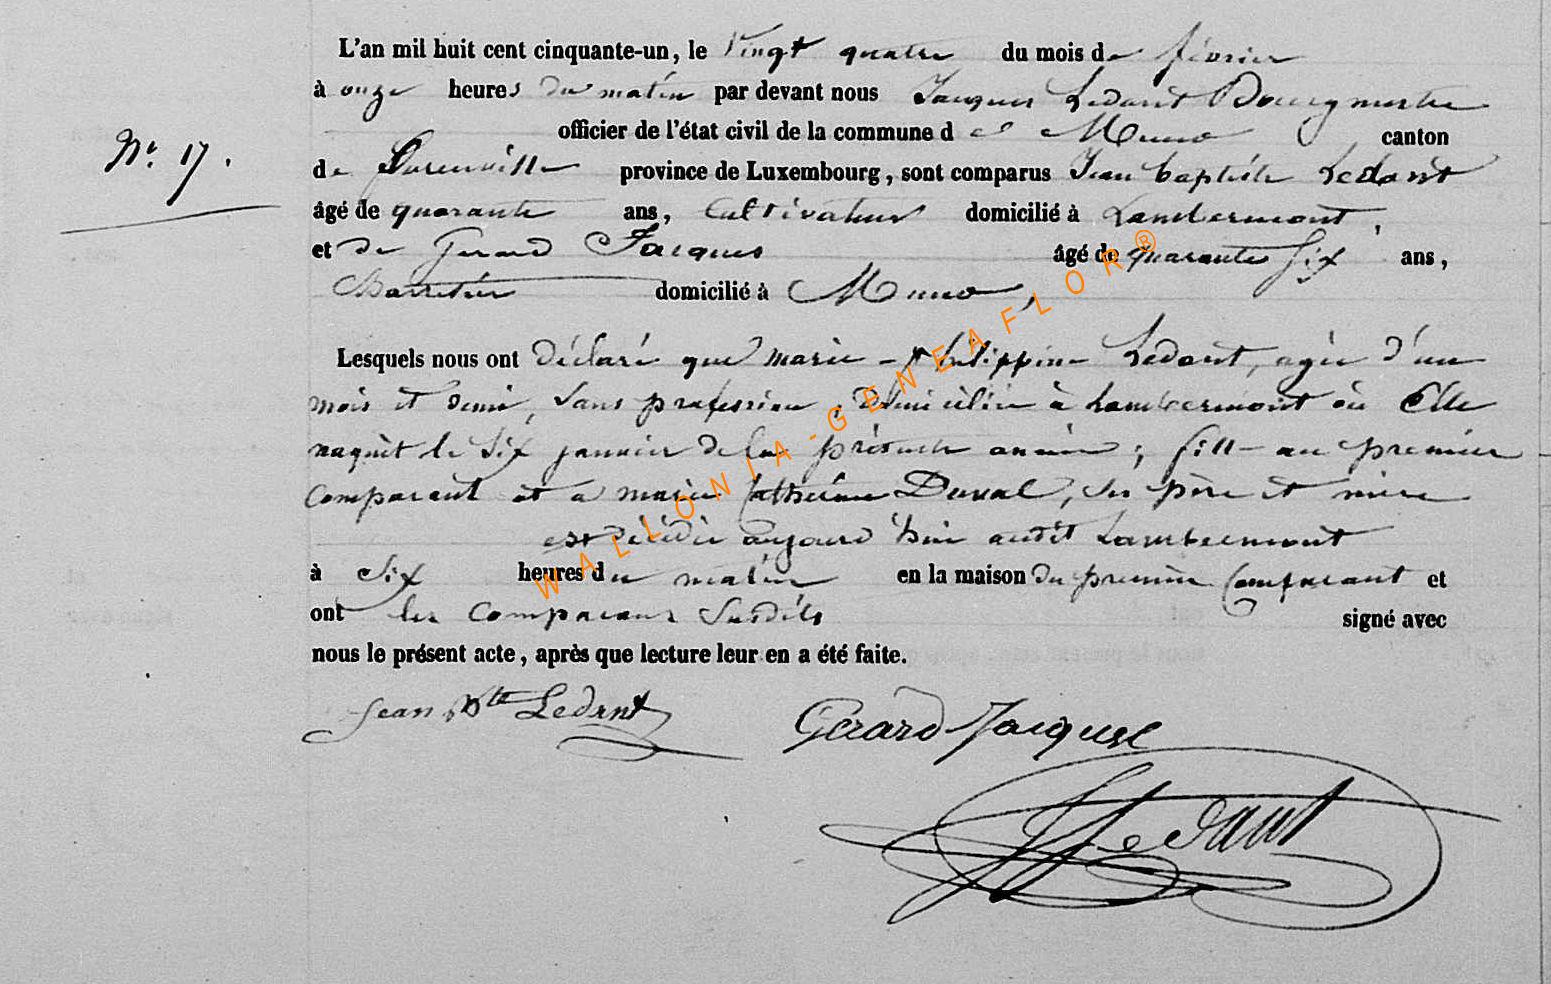 L'an mil huit cent cinquante-un, le Vingt quatre du mois de février
à onze heures du matin par devant nous Jacques Ledant Bourgmestre
officier de l'état civil de la commune de Muno canton
Nº 17.
de Florenville province de Luxembourg, sont comparus Jean baptiste Ledant
âgé de quarante ans, Cultivateur domicilié à Lambermont,
et de Gerard Jacques âgé de quarante Six ans,
domicilié à Muno,
Lesquels nous ont déclaré que marie - philippine Ledant, agée d'un
mois et demi, Sans profession, domiciliée à Lambermont où Elle
naquit le Six janvier de la présente année; fille au premier
Comparant et a marie Catherine Duval, Ses père et mère
est décédée aujourd'hui audit Lambermont
à Six heures du matin en la maison du premier Comparant et
ont les Comparans Susdits signé avec
nous le présent acte, après que lecture leur en a été faite.
Jean Bte Ledant Gérard Jacques
Ledant
WALLONIA-GENEAFLOR®